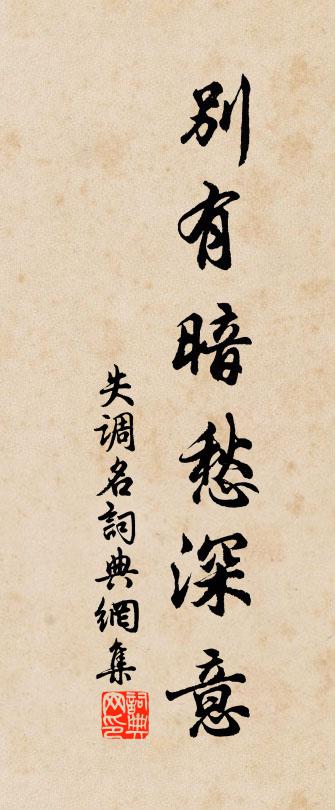 別有暗愁深意
失調名詞典網集
詞典
网印